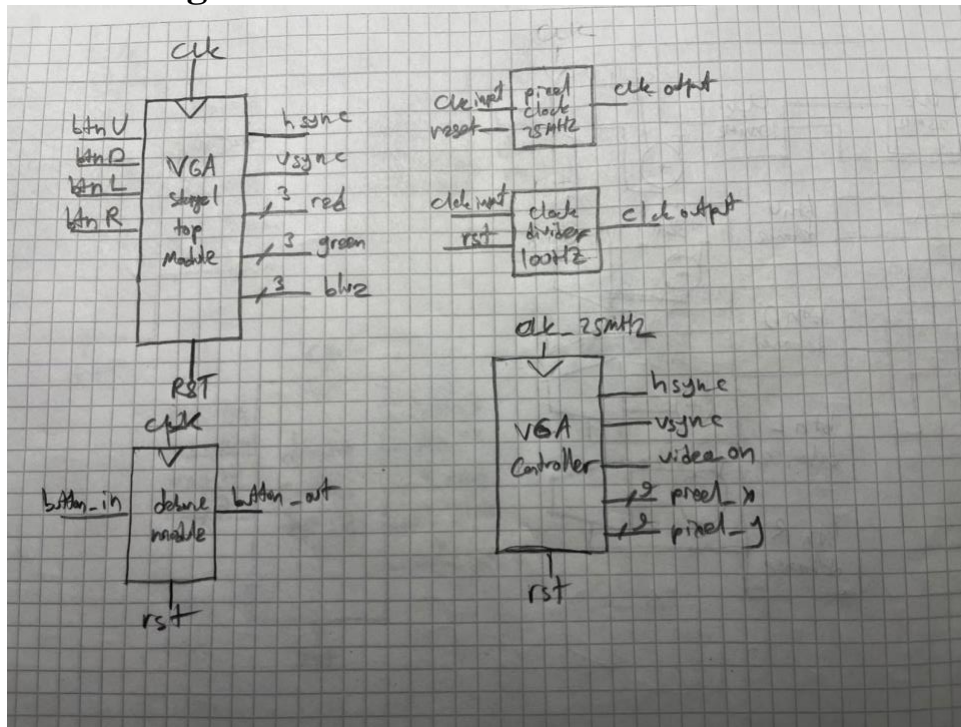 clk
btnU
btnD
btnL
btnR
VGA
top
Module
hsync
vsync
3 red
3 green
3 blue
RST
clk input
reset
pixel
clock
25MHz
clk output
clk input
rst
clock
divider
100HZ
clk output
clk
button_in
module
button_out
rst
clk_25MHz
VGA
Controller
hsync
vsync
video on
9 pixel_x
9 pixel_y
rst